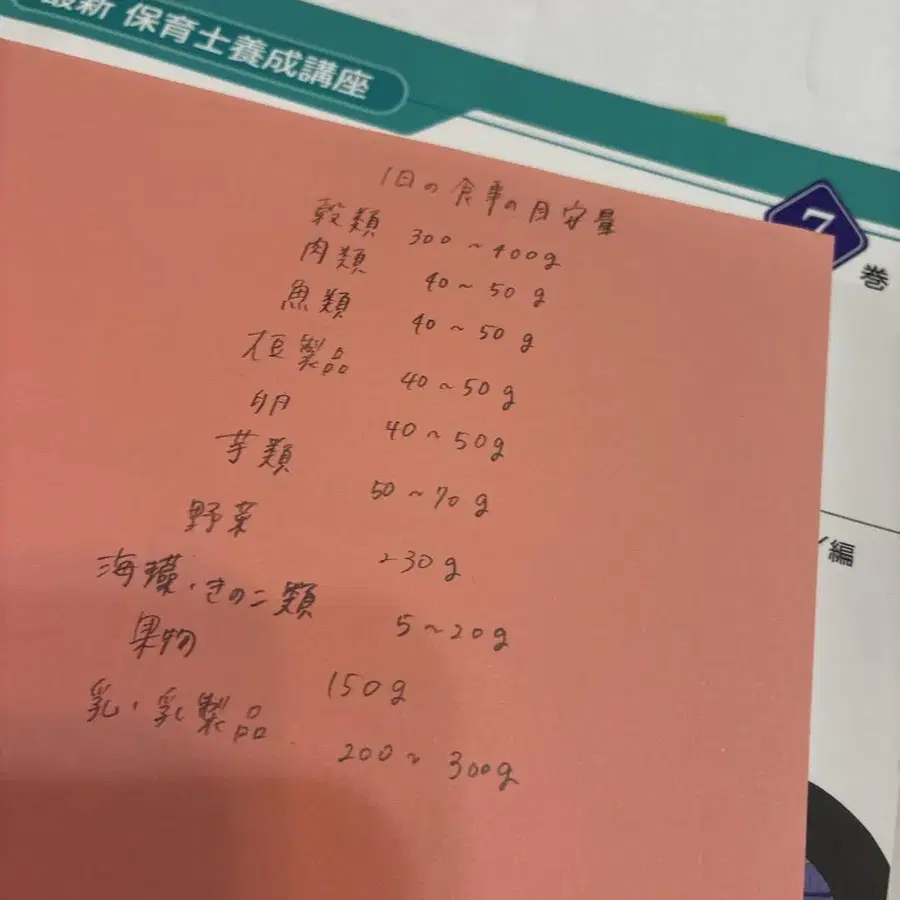 最新 保育士養成講座
7
巻
編
1日の食事の目安量
穀類 300~400g
肉類 40~50g
魚類 40~50g
大豆製品 40~50g
卵 40~50g
芋類 50~70g
野菜 230g
海藻・きのこ類 5~20g
果物 150g
乳・乳製品 200~300g